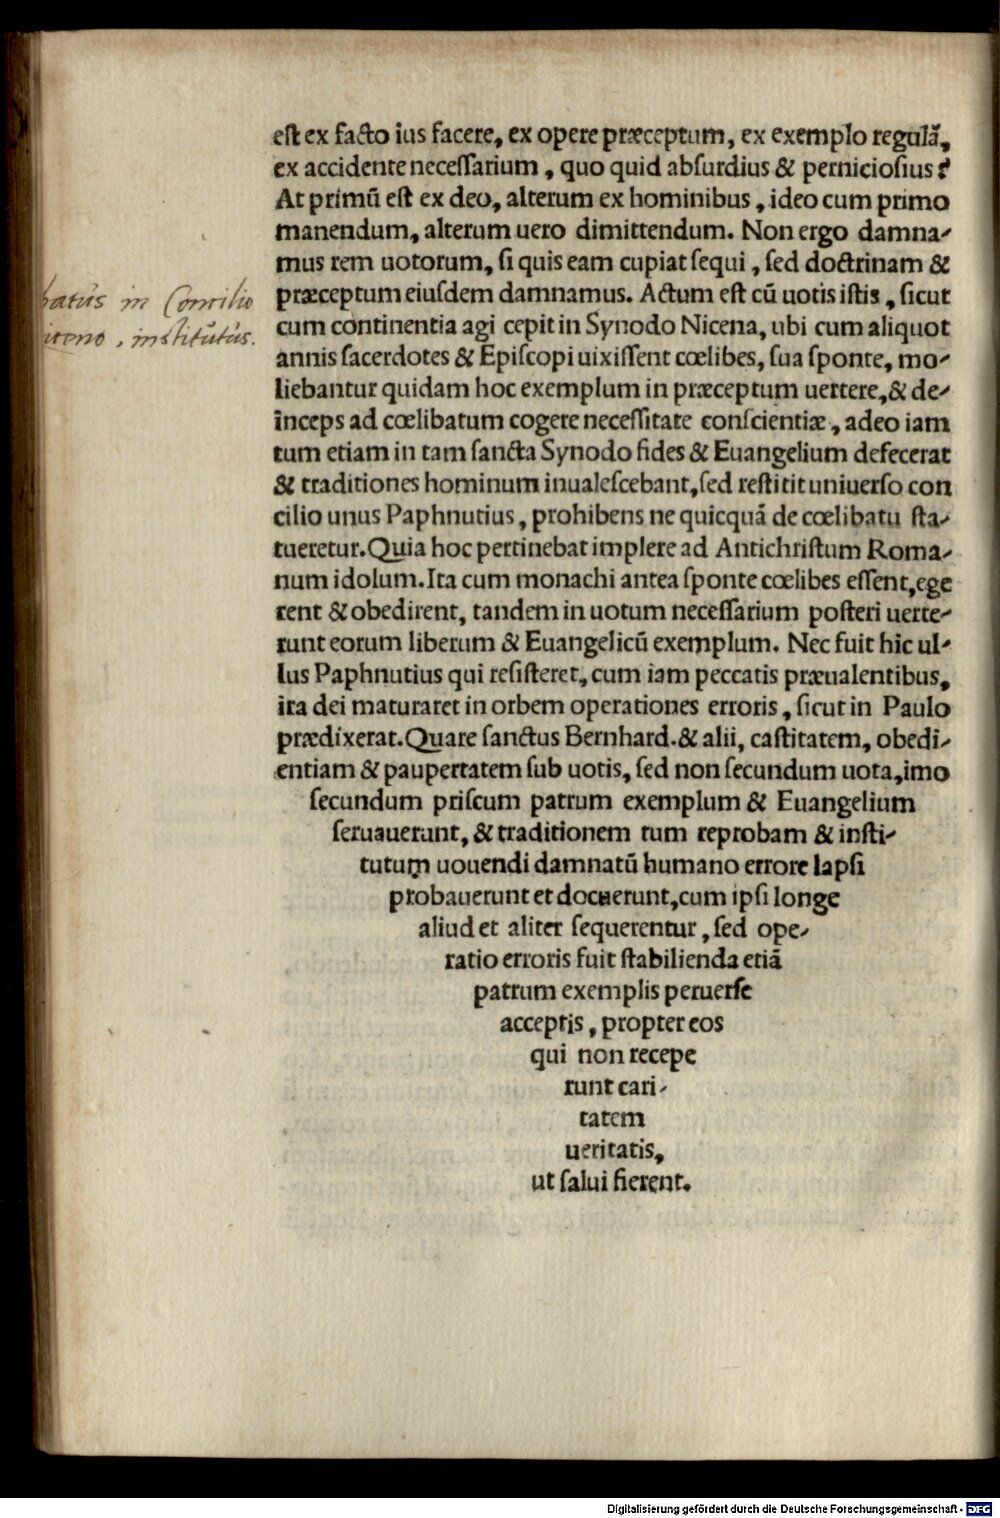 est ex facto ius facere, ex opere præceptum, ex exemplo regulã,
ex accidente necessarium, quo quid absurdius & perniciosius?
At primũ est ex deo, alterum ex hominibus, ideo cum primo
manendum, alterum uero dimittendum. Non ergo damna-
mus rem uotorum, si quis eam cupiat sequi, sed doctrinam &
præceptum eiusdem damnamus. Actum est cũ uotis istis, sicut
cum continentia agi cepit in Synodo Nicena, ubi cum aliquot
annis sacerdotes & Episcopi uixissent cœlibes, sua sponte, mo-
liebantur quidam hoc exemplum in præceptum uertere, & de-
inceps ad cœlibatum cogere necessitate conscientiæ, adeo iam
tum etiam in tam sancta Synodo fides & Euangelium defecerat
& traditiones hominum inualescebant, sed restitit uniuerso con
cilio unus Paphnutius, prohibens ne quicquã de cœlibatu sta-
tueretur. Quia hoc pertinebat implere ad Antichristum Roma-
num idolum. Ita cum monachi antea sponte cœlibes essent, ege
rent & obedirent, tandem in uotum necessarium posteri uerte-
runt eorum liberum & Euangelicũ exemplum. Nec fuit hic ul-
lus Paphnutius qui resisteret, cum iam peccatis præualentibus,
ira dei maturaret in orbem operationes erroris, sicut in Paulo
prædixerat. Quare sanctus Bernhard. & alii, castitatem, obedi-
entiam & paupertatem sub uotis, sed non secundum uota, imo
secundum priscum patrum exemplum & Euangelium
seruauerunt, & traditionem tum reprobam & insti-
tutum uouendi damnatũ humano errore lapsi
probauerunt et docuerunt, cum ipsi longe
aliud et aliter sequerentur, sed ope-
ratio erroris fuit stabilienda etiã
patrum exemplis peruerse
acceptis, propter eos
qui non recepe
runt cari-
tatem
ueritatis,
ut salui fierent.
batus in Concilio
iceno, institutus.
Digitalisierung gefördert durch die Deutsche Forschungsgemeinschaft - DFG